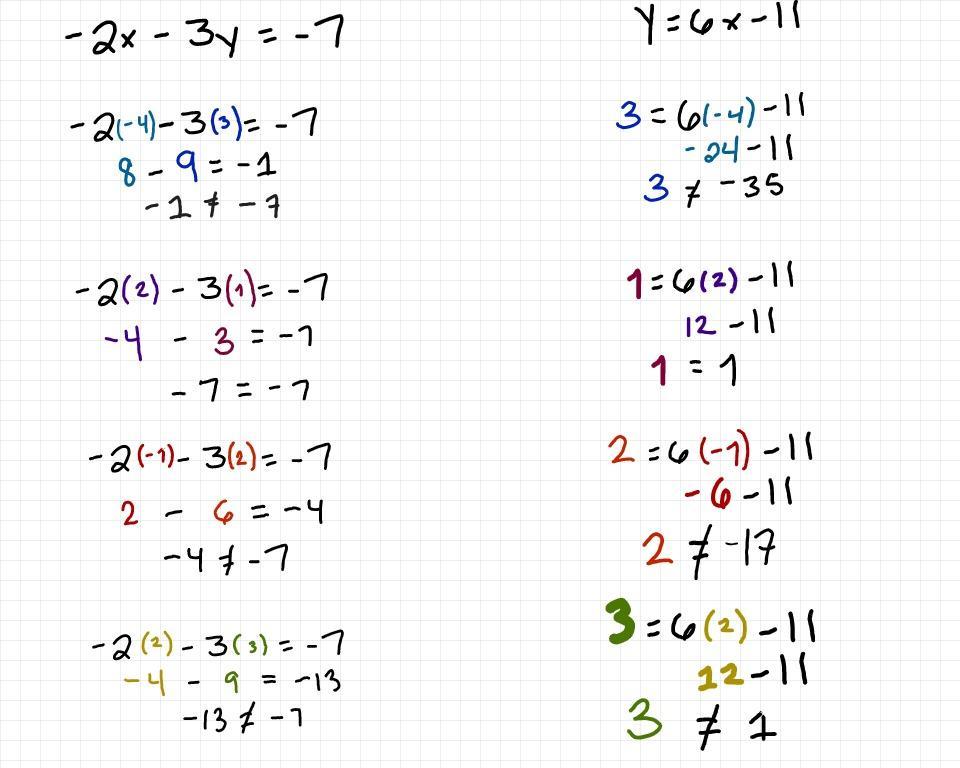 -2x - 3y = -7
-2(-4) - 3(3) = -7
8 - 9 = -1
-1 ≠ -7
-2(2) - 3(1) = -7
-4 - 3 = -7
-7 = -7
-2(-1) - 3(2) = -7
2 - 6 = -4
-4 ≠ -7
-2(2) - 3(3) = -7
-4 - 9 = -13
-13 ≠ -7
y = 6x - 11
3 = 6(-4) - 11
-24 - 11
3 ≠ -35
1 = 6(2) - 11
12 - 11
1 = 1
2 = 6(-1) - 11
-6 - 11
2 ≠ -17
3 = 6(2) - 11
12 - 11
3 ≠ 1